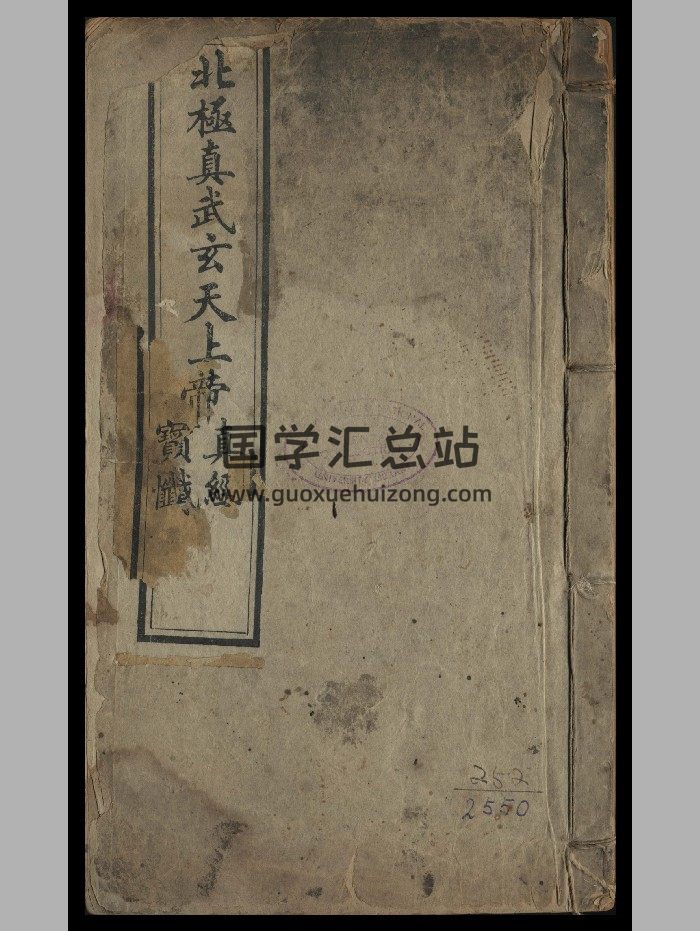 北極真武玄天上帝
真經
寶懺
国学汇总站
www.guoxuehuizong.com
252
2550